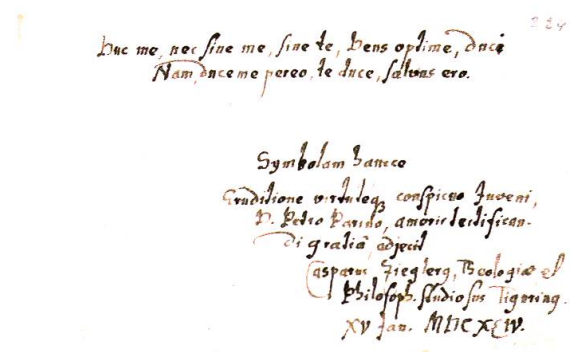 224
Duc me, nec sine me, sine te, Deus optime, duci
Nam, duce me pereo, te duce, salvus ero.
Symbolam hancce
Eruditione virtuteq conspicuo Juveni,
D. Petro Parino, amoris testifican-
di gratia, adjecit
Casparus Zieglerg, Theologiæ et
Philosoph. studiosus Tiguring.
XV Jan. MDCXCIV.